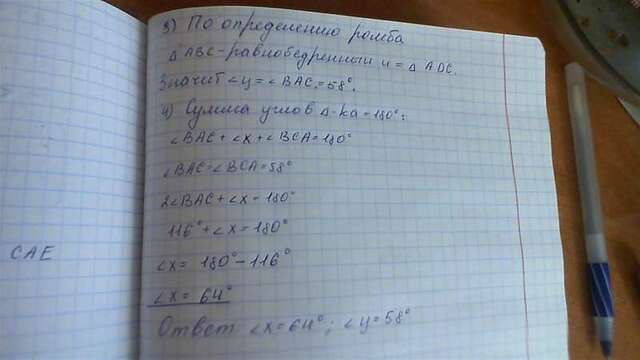 3) По определению ромба
△ABC-равнобедренный и = △ADC.
Значит ∠y=∠BAC=58°.
4) Сумма углов △-ка=180°:
∠BAC+∠x+∠BCA=180°
∠BAC=∠BCA=58°
2∠BAC+∠x=180°
116°+∠x=180°
∠x= 180°-116°
∠x= 64°
Ответ: ∠x=64°; ∠y=58°
CAE